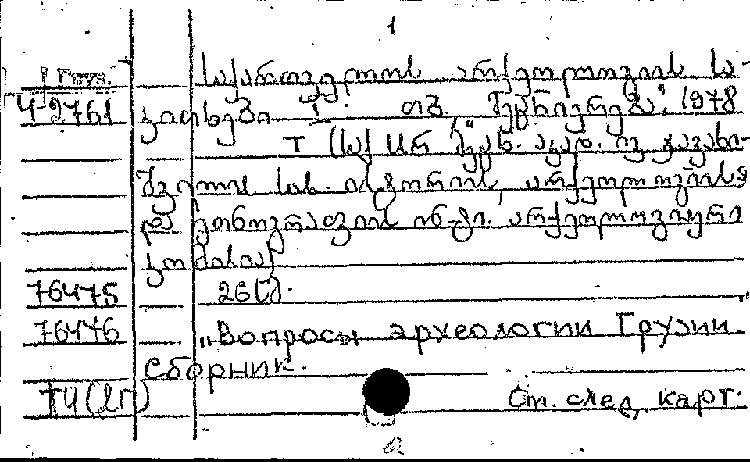 1
1 Груз.
საქართველოს არქეოლოგიის სა-
Ч-9761 კითხები I. თბ., „მეცნიერება", 1978
T (საქ. სსრ მეცნ. აკად. ივ. ჯავახი-
შვილის სახ. ისტორიის, არქეოლოგიისა
და ეთნოგრაფიის ინ-ტი. არქეოლოგიური
კომისია)
76475 26
76476 „Вопросы археологии Грузии.
Сборник.
ТЧ(2г) См. след. карт.